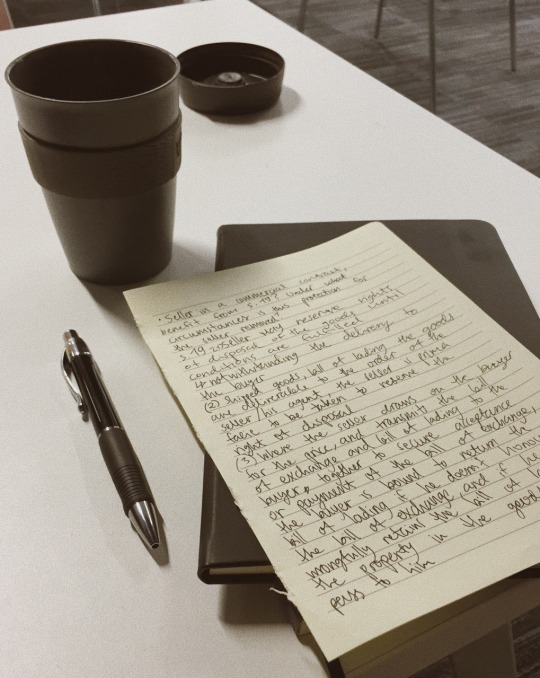 • Seller in a commercial contract,
benefit from S.19? Under what
circumstances is this protection for
the seller removed
S.19 Seller may reserve rights
of disposal of the goods until
conditions are fulfilled
notwithstanding the delivery to
the buyer
(2) Shipped goods, bill of lading the goods
are deliverable to the order of the
seller/his agent, the seller is prima
facie to be taken to reserve the
right of disposal
(3) Where the seller draws on the buyer
for the price, and transmits the bill
of exchange and bill of lading to the
buyer together to secure acceptance
or payment of the bill of exchange,
the buyer is bound to return the
bill of lading if he doesn't honour
the bill of exchange and if he
wrongfully return the bill of
the property in the goods
pass to him